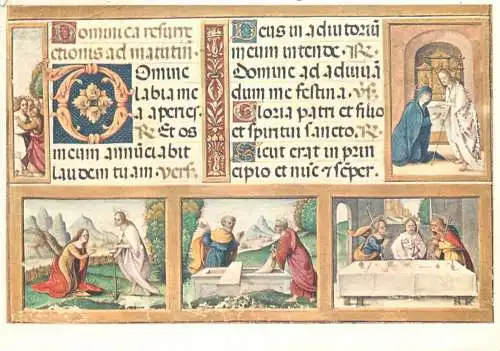 Dominica resurre
ctionis ad matutin̄.
Domine
labia me
a aperies.
℟ Et os
meum annūciabit
laudem tuam. Vers.
Deus in adiutoriū
meum intende. ℟.
Domine ad adiuuā
dum me festina. ℣.
Gloria patri et filio
et spiritui sancto. ℟.
Sicut erat in prin
cipio et nūc & sēper.